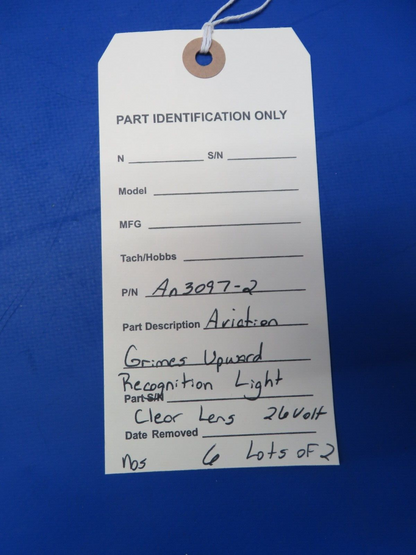 PART IDENTIFICATION ONLY
N S/N
Model
MFG
Tach/Hobbs
P/N An3097-2
Part Description Aviation
Grimes Upward
Recognition Light
Part S/N
Clear Lens 26Volt
Date Removed
Nos 6 Lots of 2